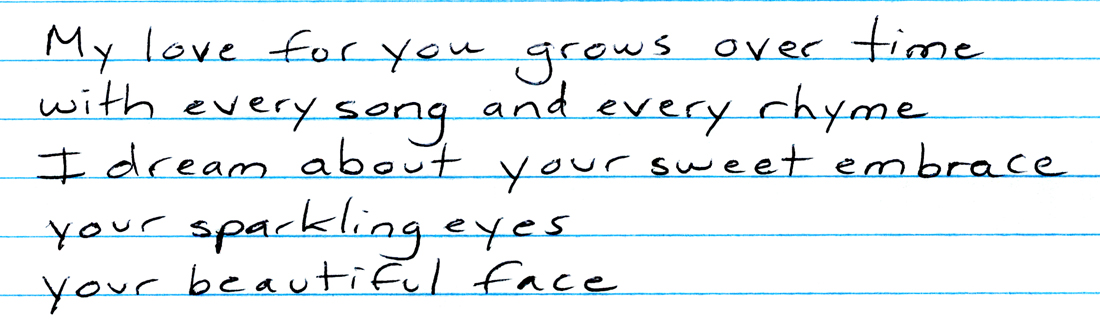 My love for you grows over time
with every song and every rhyme
I dream about your sweet embrace
your sparkling eyes
your beautiful face